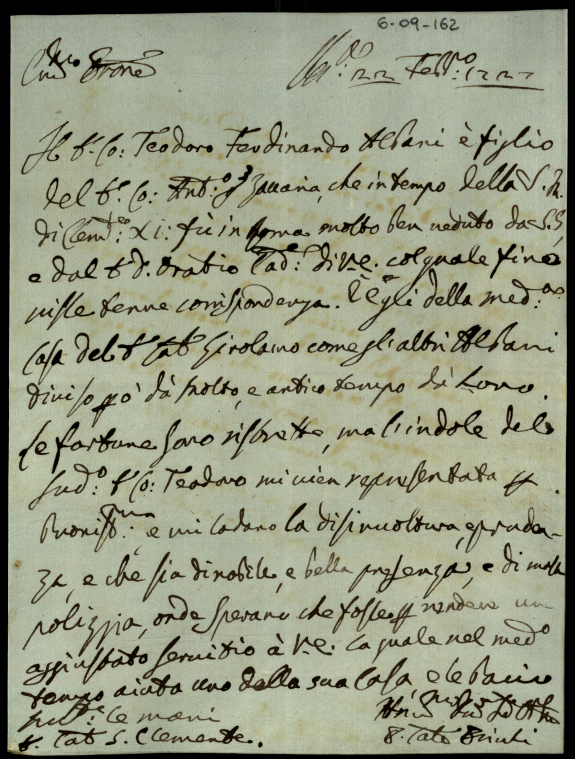 6-09-162
Febr:o 1727
Il S.r Co: Teodoro Ferdinando Albani è figlio
del S.r Co: Ant:o che in tempo della S. M.
di Clem:te XI: fù in Roma molto ben veduto da S. S,
e dal S.r D. Oratio Pad:e di V.E. col quale fin
visse tenne corrispondenza. Egli è della med:ma
Casa del S.r Girolamo come gl'altri Albani
diviso però da molto, e antico tempo da Loro.
Le fortune sono ristrette, ma l'indole del
sud:o S.r Co: Teodoro mi vien representata p
e mi lodano la disinvoltura, e pruden-
za, e che sia di nobile, e bella presenza, e di molta
polizzia, onde sperano che fosse p rendere un
aggiustato servitio à V.E. la quale nel med:o
tempo aiuta uno della sua Casa, e le bacio
le mani
S. Clemente.